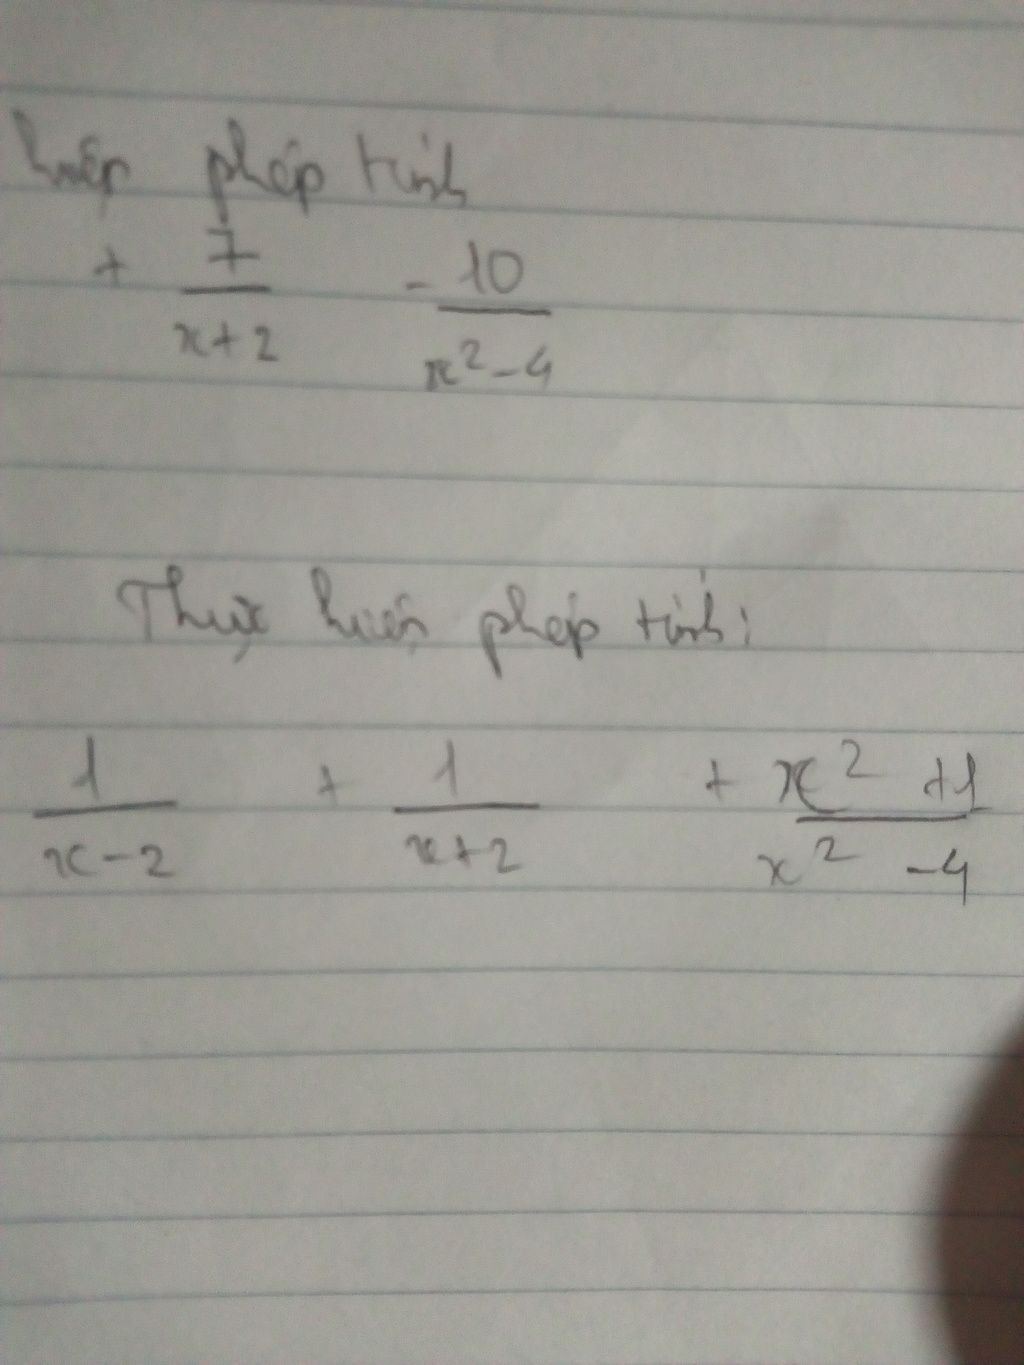 phép tính
+ 7/(x+2) - 10/(x²-4)
Thực hiện phép tính:
1/(x-2) + 1/(x+2) + (x²+1)/(x²-4)